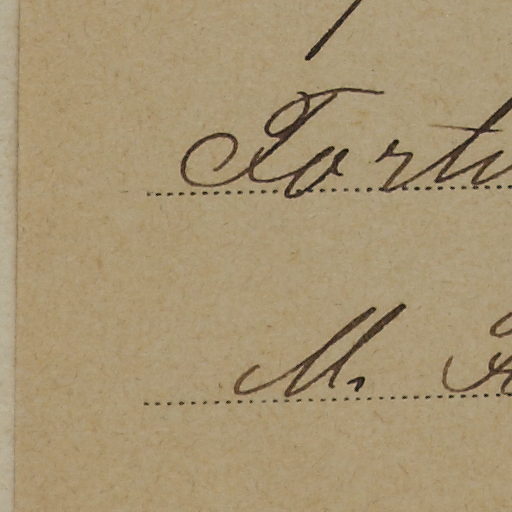 Tortu
M.